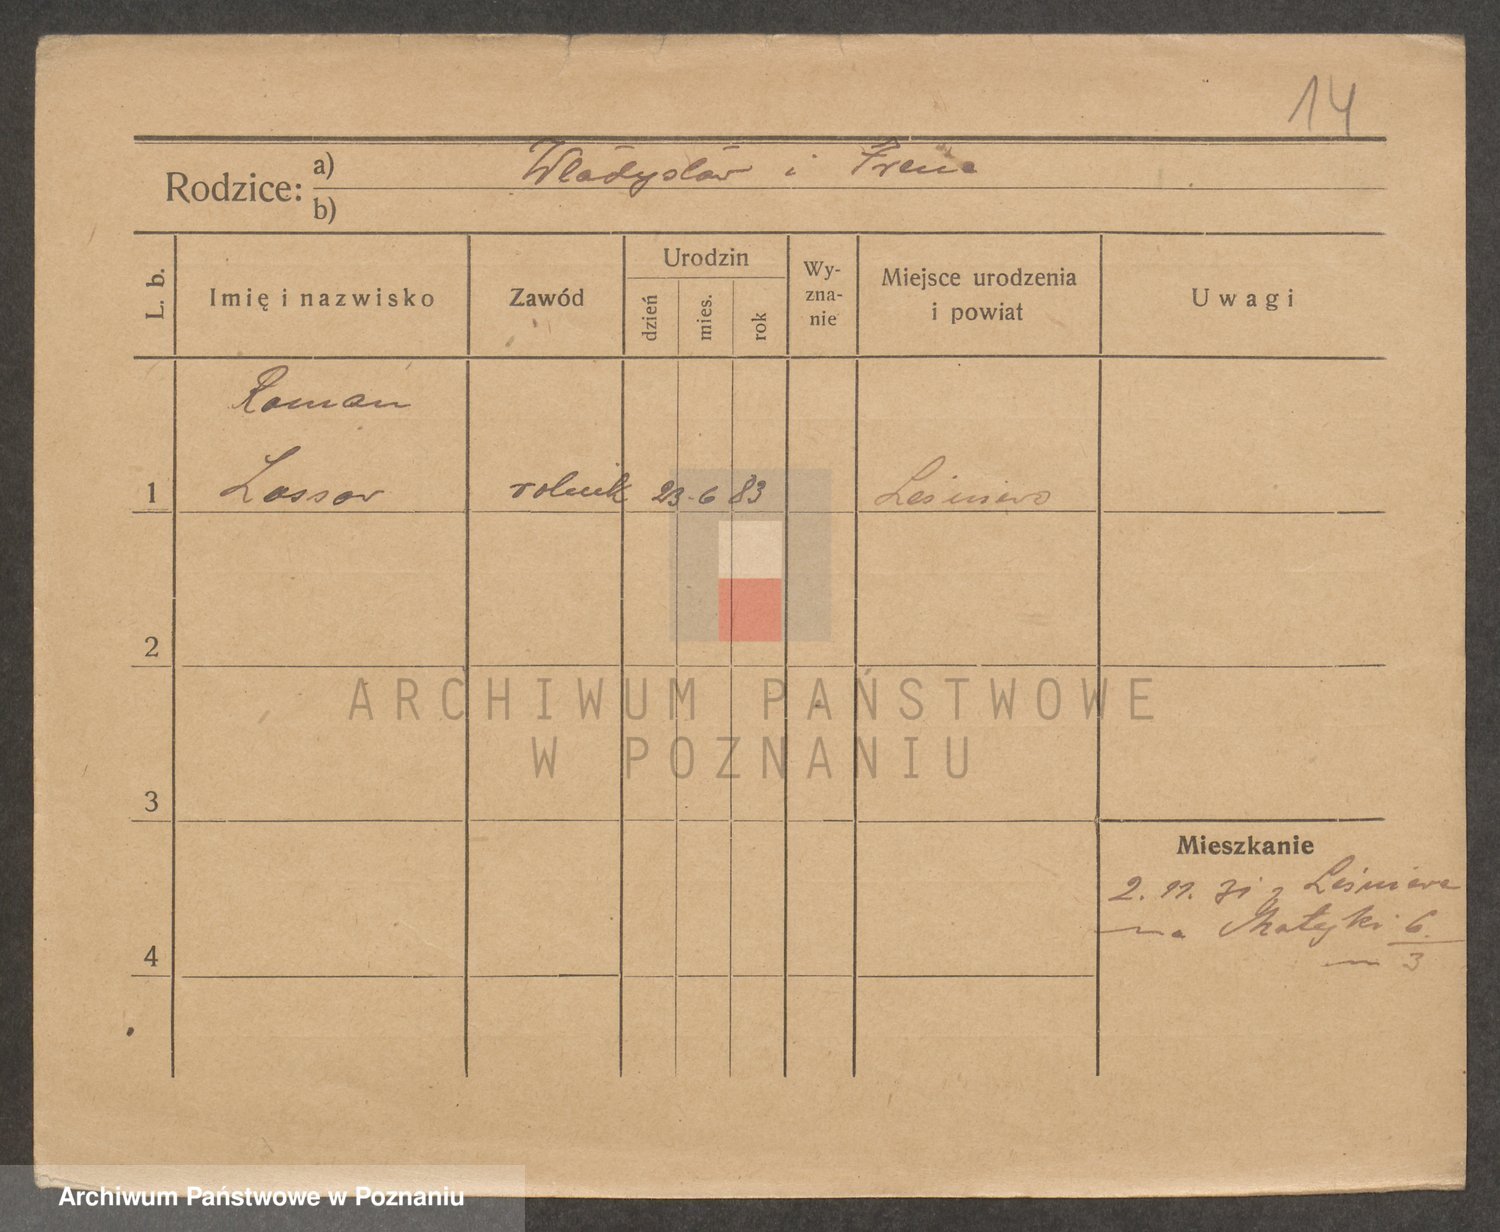 14
Rodzice: a) Władysław i Irena
b)
L. b. Imię i nazwisko Zawód Urodzin dzień mies. rok Wy-zna-nie Miejsce urodzenia i powiat Uwagi
Roman
1 Lossow rolnik 23 6 83 Leśniewo
2
ARCHIWUM PAŃSTWOWE
W POZNANIU
3
Mieszkanie
2. 11. 31 z Leśniewa
na Matejki 6
4
m 3
Archiwum Państwowe w Poznaniu